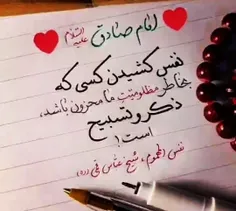 امام صادق علیه‌السلام
نفس کشیدن کسی که
بخاطر مظلومیت ما محزون باشد،
ذکر و تسبیح
است!
نفس المهموم، شیخ عباس قمی (ره)